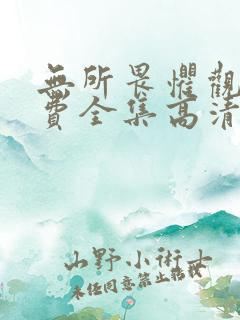 無所畏懼觀
費全集高清
山野小術士
未任同意禁止轉載